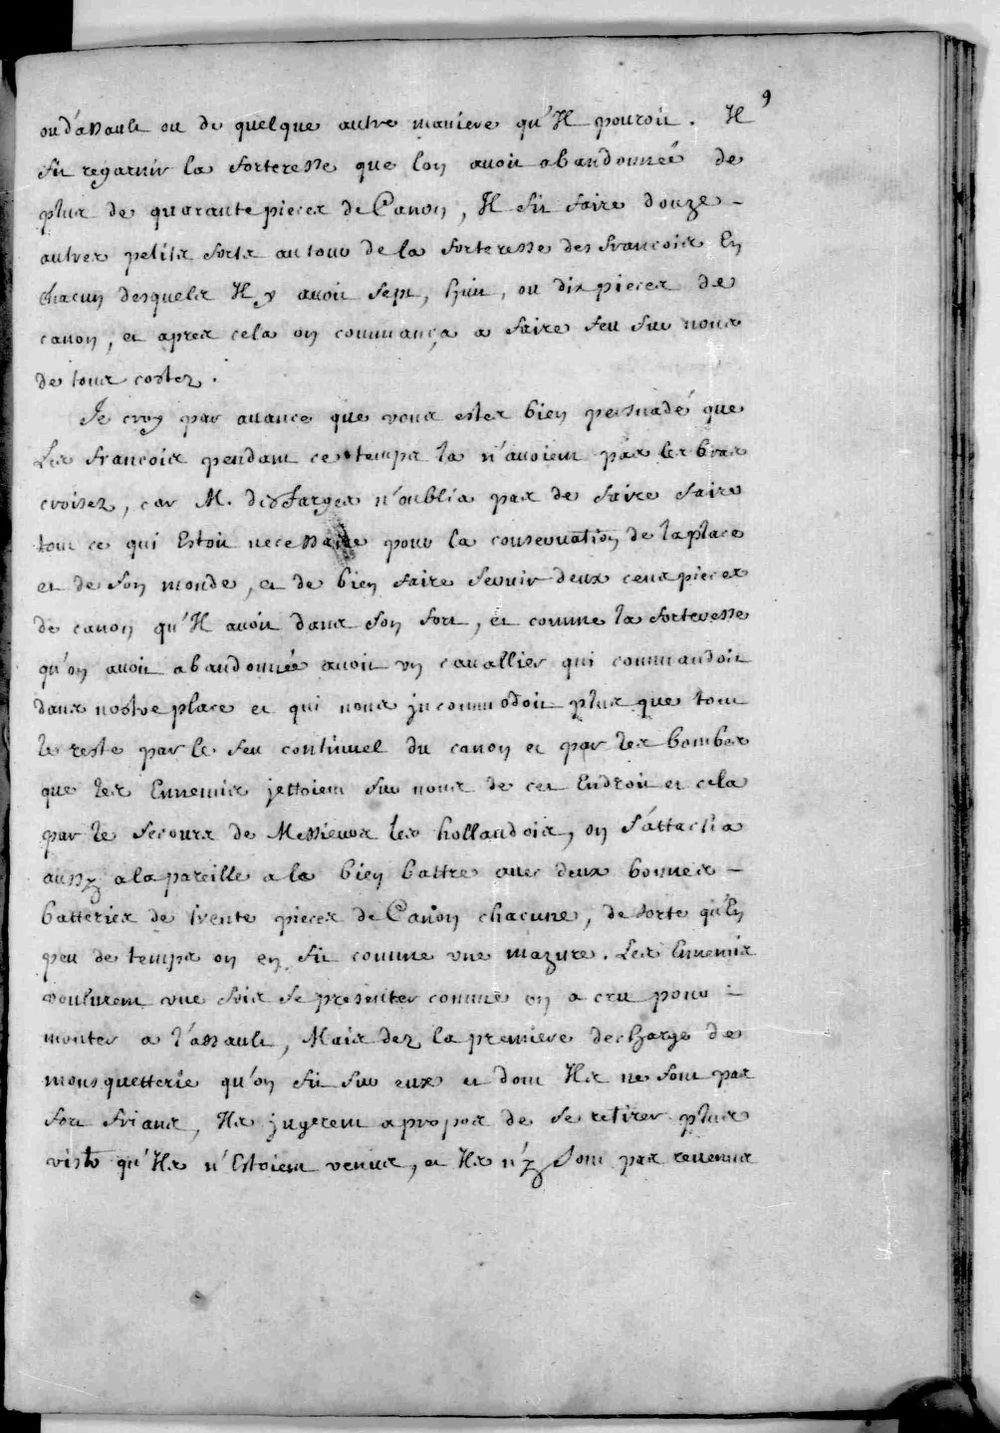 9
ou d'assault ou de quelque autre maniere qu'Il pouroit. Il
fit regarnir la forteresse que lon auoit abandonneé de
plus de quarante pieces de Canon, Il fit faire douze –
autres petits forts autour de la forteresse des francois En
chacun desquels Il y auoit sept, huit, ou dix pieces de
canon, et apres cela on commança a faire feu sur nous
de tous costez.
Je croy par auance que vous estes bien persuadé que
Les francois pendant ce temps la n'auoient pas les bras
croisez, car M. des farges n'oublia pas de faire faire
tout ce qui Estoit necessaire pour la conseruation de la place
et de son monde, et de bien faire seruir deux cens pieces
de canon qu'Il auoit dans son fort, et comme la forteresse
qu'on auoit abandonnée auoit vn cauallier qui commandoit
dans nostre place et qui nous jncommodoit plus que tout
le reste par le feu continuel du canon et par les bombes
que les Ennemis jettoient sur nous de cet Endroit et cela
par le secours de Messieurs les hollandois, on s'attacha
aussy a la pareille a la bien battre auec deux bonnes –
batteries de trente pieces de Canon chacune, de sorte qu'En
peu de temps on en fit comme vne mazure. Les Ennemis
voulurent vne fois se presenter comme on a cru pour –
monter a l'assault, Mais dez la premiere decharge de
mousquetterie qu'on fit sur eux et dont Ils ne sont pas
fort frians, Ils jugerent a propos de se retirer plus
viste qu'Ils n'Estoient venus, et Ils n'y sont pas reuenus